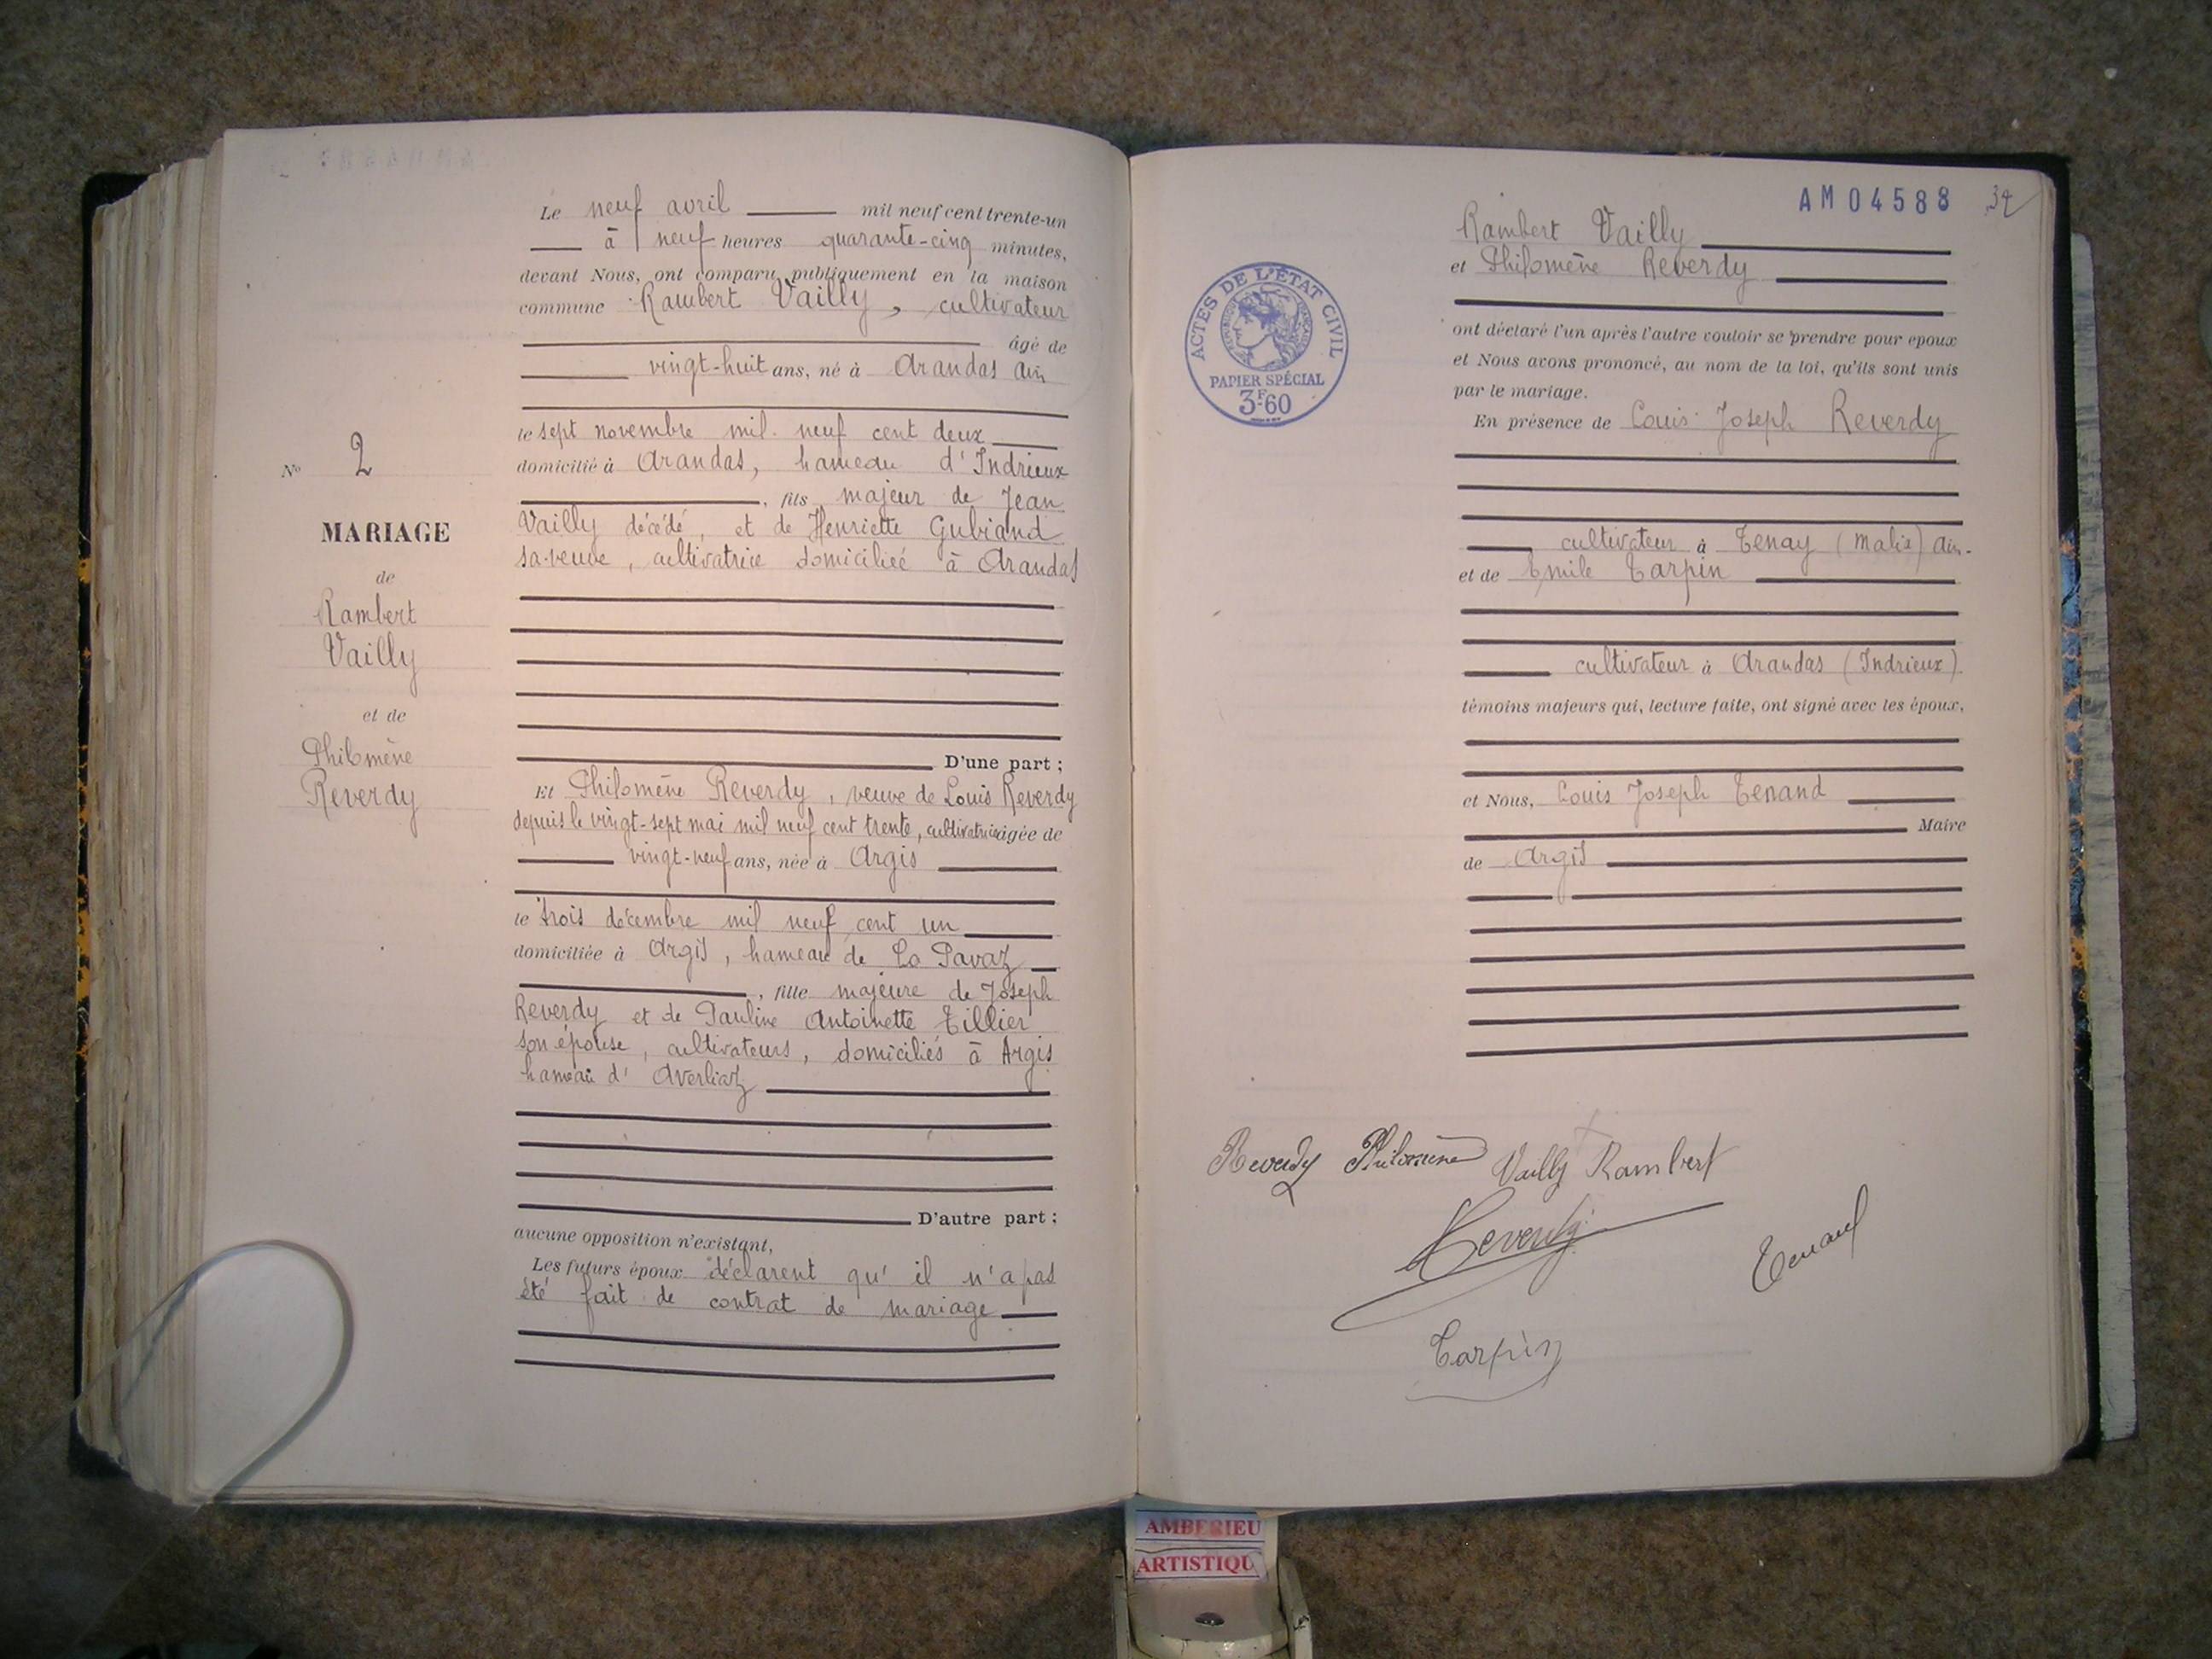 Le neuf avril mil neuf cent trente-un
à neuf heures quarante-cinq minutes,
devant Nous, ont comparu publiquement en la maison
commune Rambert Vailly, cultivateur
âgé de
vingt-huit ans, né à Arandas Ain
le sept novembre mil neuf cent deux
domicilié à Arandas, hameau d'Indrieux
, fils majeur de Jean
Vailly décédé, et de Henriette Gubiand
sa veuve, cultivatrice domiciliée à Arandas
D'une part ;
Et Philomène Reverdy, veuve de Louis Reverdy
depuis le vingt-sept mai mil neuf cent trente, cultivatrice âgée de
vingt-neuf ans, née à Argis
le trois décembre mil neuf cent un
domiciliée à Argis, hameau de La Pavaz
, fille majeure de Joseph
Reverdy et de Pauline Antoinette Tillier
son épouse, cultivateurs, domiciliés à Argis
hameau d' Averliaz
D'autre part ;
aucune opposition n'existant,
Les futurs époux déclarent qu' il n'a pas
été fait de contrat de mariage
N° 2
MARIAGE
de
Rambert
Vailly
et de
Philomène
Reverdy
AM04588
32
ACTES DE L'ÉTAT CIVIL
RÉPUBLIQUE FRANÇAISE
PAPIER SPÉCIAL
3F60
Rambert Vailly
et Philomène Reverdy
ont déclaré l'un après l'autre vouloir se prendre pour époux
et Nous avons prononcé, au nom de la loi, qu'ils sont unis
par le mariage.
En présence de Louis Joseph Reverdy
cultivateur à Tenay (Malix) Ain.
et de Emile Tarpin
cultivateur à Arandas (Indrieux).
témoins majeurs qui, lecture faite, ont signé avec les époux,
et Nous, Louis Joseph Tenand
Maire
de Argis
Reverdy Philomène Vailly Rambert
Reverdy
Tenand
Tarpin
AMBERIEU
ARTISTIQU